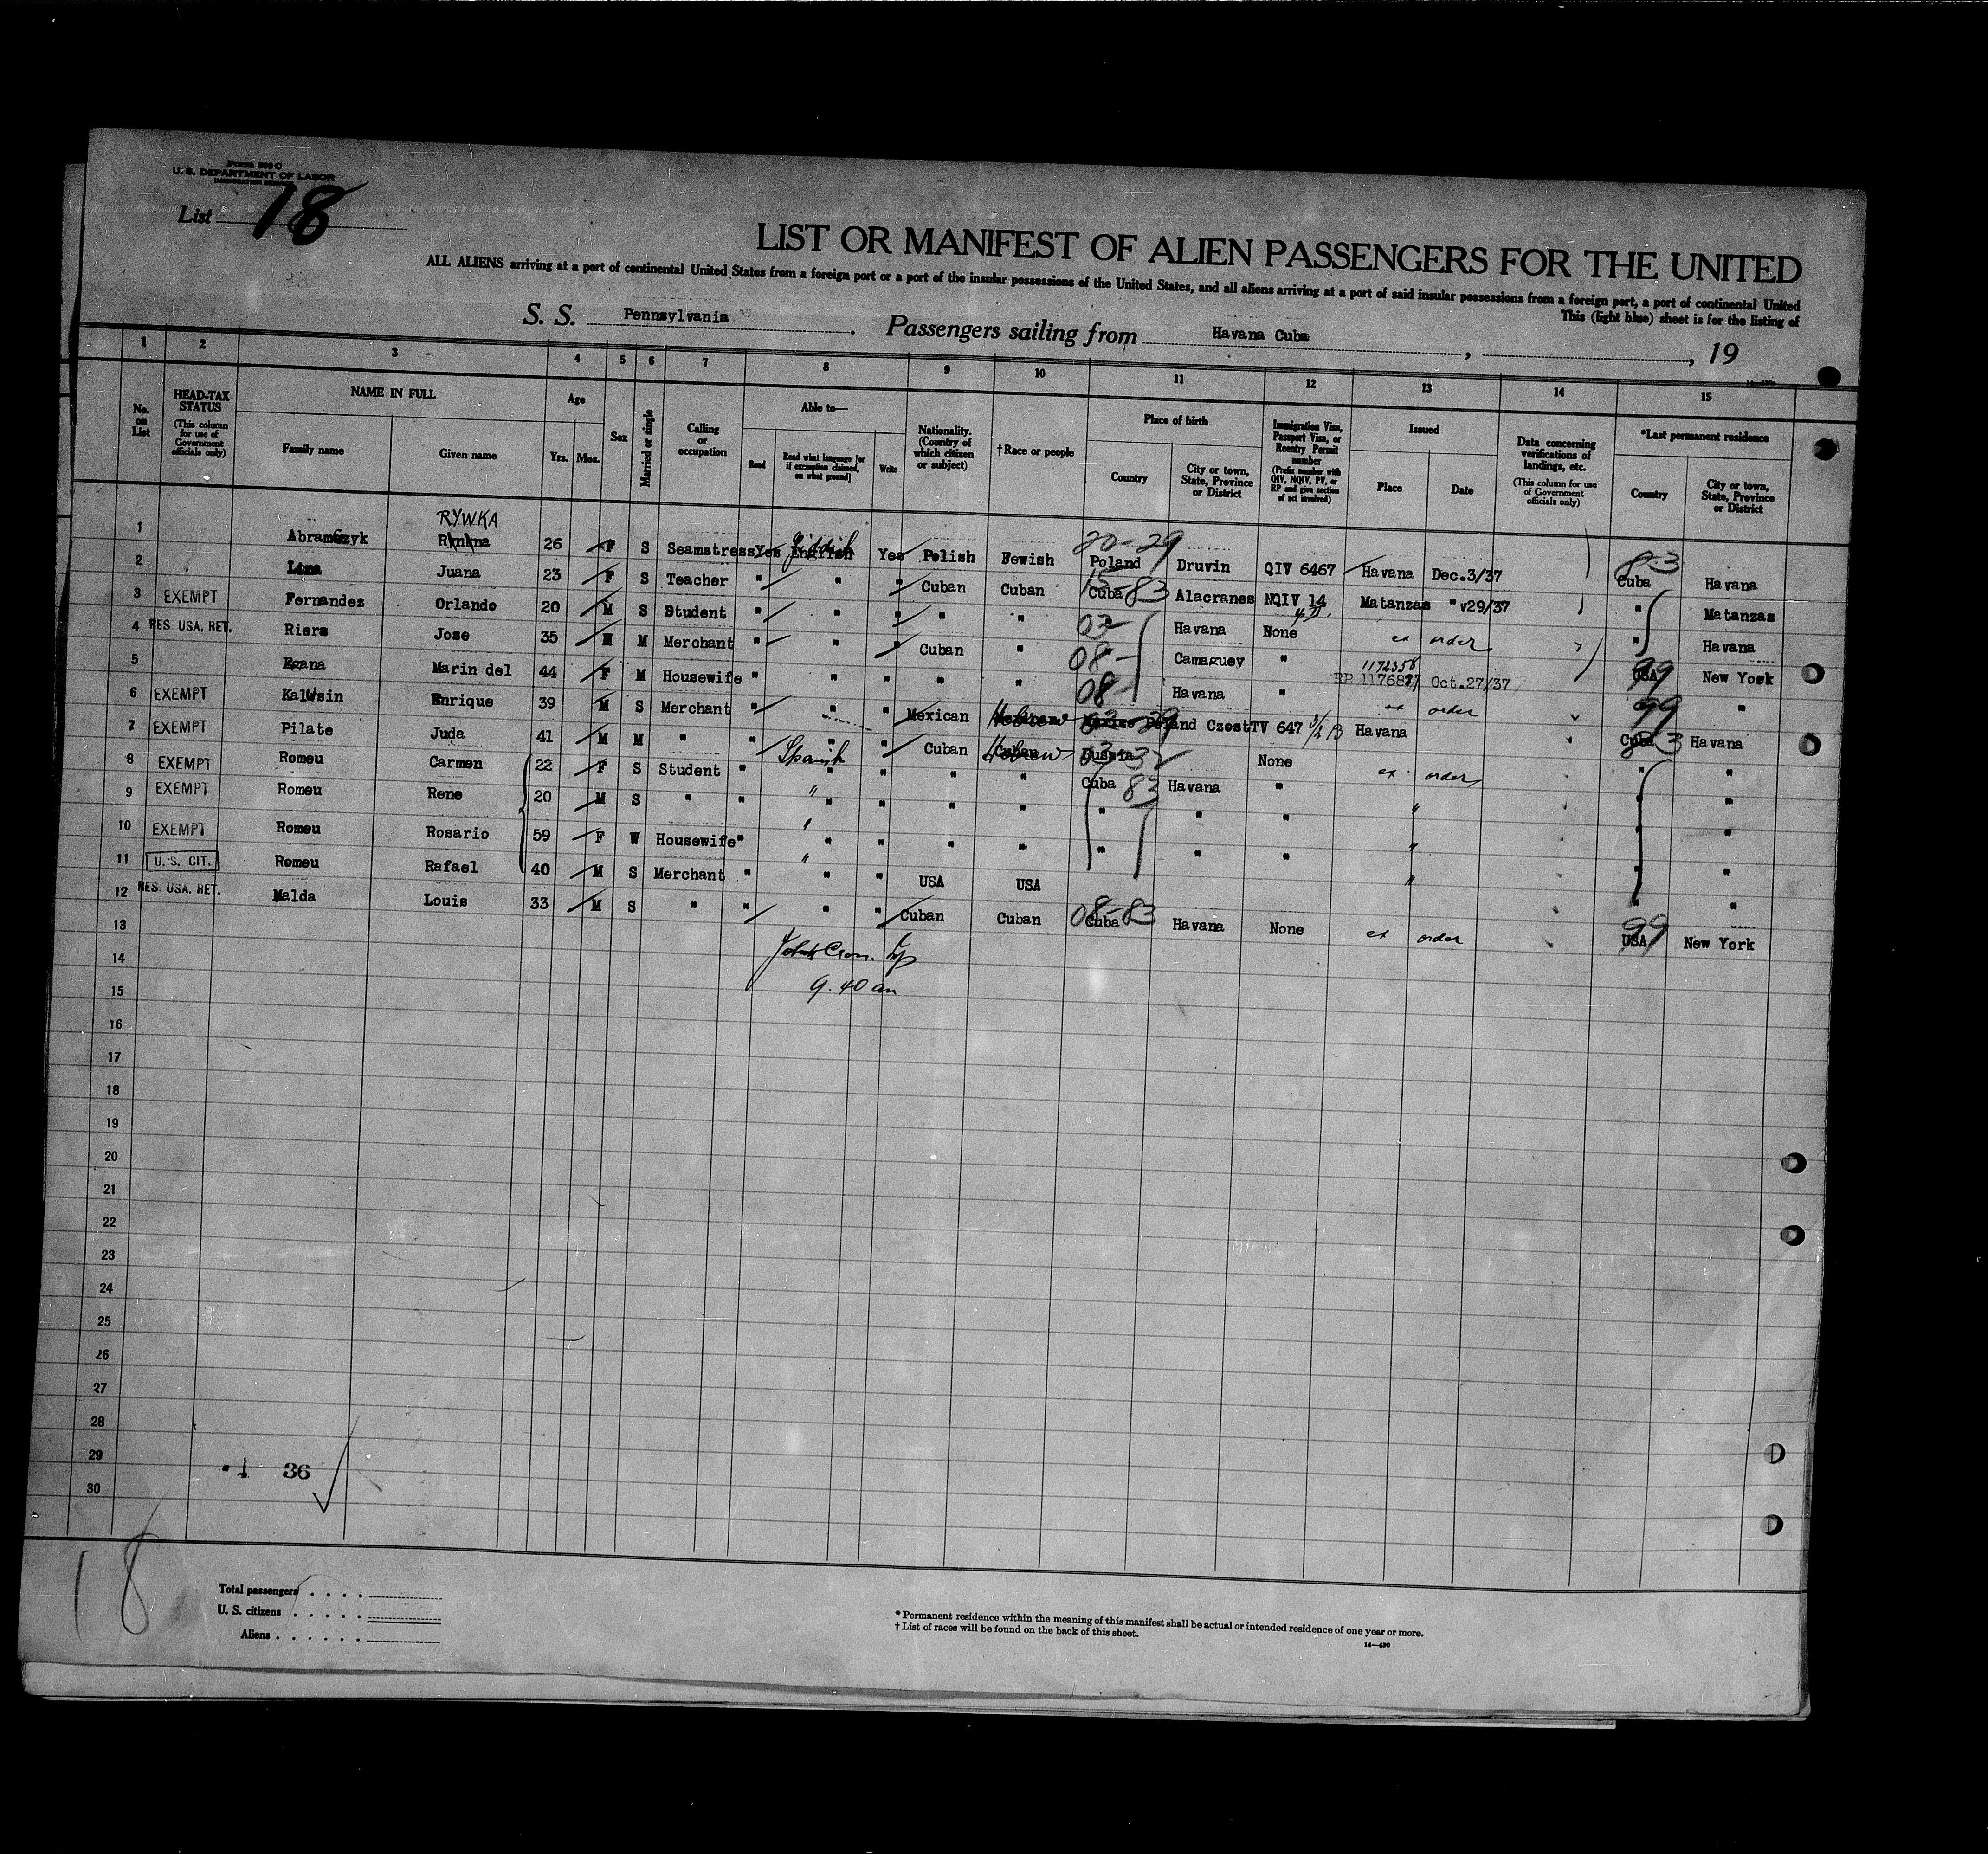 Form 500 C
U. S. DEPARTMENT OF LABOR
List 18
LIST OR MANIFEST OF ALIEN PASSENGERS FOR THE UNITED
ALL ALIENS arriving at a port of continental United States from a foreign port or a port of the insular possessions of the United States, and all aliens arriving at a port of said insular possessions from a foreign port, a port of continental United
This (light blue) sheet is for the listing of
S. S. Pennsylvania . Passengers sailing from Havana Cuba , , 19
1 2 3 4 5 6 7 8 9 10 11 12 13 14 15
No. on List
HEAD-TAX STATUS
(This column for use of Government officials only)
NAME IN FULL
Family name Given name
Age
Yrs. Mos.
Sex
Married or single
Calling or occupation
Able to—
Read Read what language [or if exemption claimed, on what ground] Write
Nationality. (Country of which citizen or subject)
†Race or people
Place of birth
Country City or town, State, Province or District
Immigration Visa, Passport Visa, or Reentry Permit number
(Prefix number with QIV, NQIV, PV, or RP and give section of act involved)
Issued
Place Date
Data concerning verifications of landings, etc.
(This column for use of Government officials only)
*Last permanent residence
Country City or town, State, Province or District
RYWKA
1 Abramczyk 26 F S Seamstress Yes Yiddish Yes Polish Jewish 20-29 Poland Druvin QIV 6467 Havana Dec.3/37 83 Cuba Havana
2 Juana 23 F S Teacher " " " Cuban Cuban 15-83 Cuba Alacranes NQIV 14 Matanzas "v29/37 " Matanzas
3 EXEMPT Fernandez Orlando 20 M S Student " " " " " 02- Havana None ex order " Havana
4 RES. USA. RET. Riera Jose 35 M M Merchant " " " Cuban " 08- Camaguey " 1172358 RP 1176827 Oct.27/37 99 USA New York
5 Egana Marin del 44 F M Housewife " " " " " 08- Havana " ex order 99 "
6 EXEMPT Kalusin Enrique 39 M S Merchant " " " Mexican Hebrew Poland Czest TV 647 3/2 B Havana Cuba 83 Havana
7 EXEMPT Pilate Juda 41 M M " " Spanish " Cuban Hebrew Russia None ex order " "
8 EXEMPT Romeu Carmen 22 F S Student " " " " " Cuba 83 Havana " " " "
9 EXEMPT Romeu Rene 20 M S " " " " " " " " " " " "
10 EXEMPT Romeu Rosario 59 F W Housewife " " " " " " " " " " "
11 U. S. CIT. Romeu Rafael 40 M S Merchant " " " USA USA " "
12 RES. USA. RET. Malda Louis 33 M S " " " " Cuban Cuban 08-83 Cuba Havana None ex order 99 USA New York
13
14
9.40 am
15
16
17
18
19
20
21
22
23
24
25
26
27
28
29
1 36
30
18
Total passengers
U. S. citizens
Aliens
* Permanent residence within the meaning of this manifest shall be actual or intended residence of one year or more.
† List of races will be found on the back of this sheet.
14—430